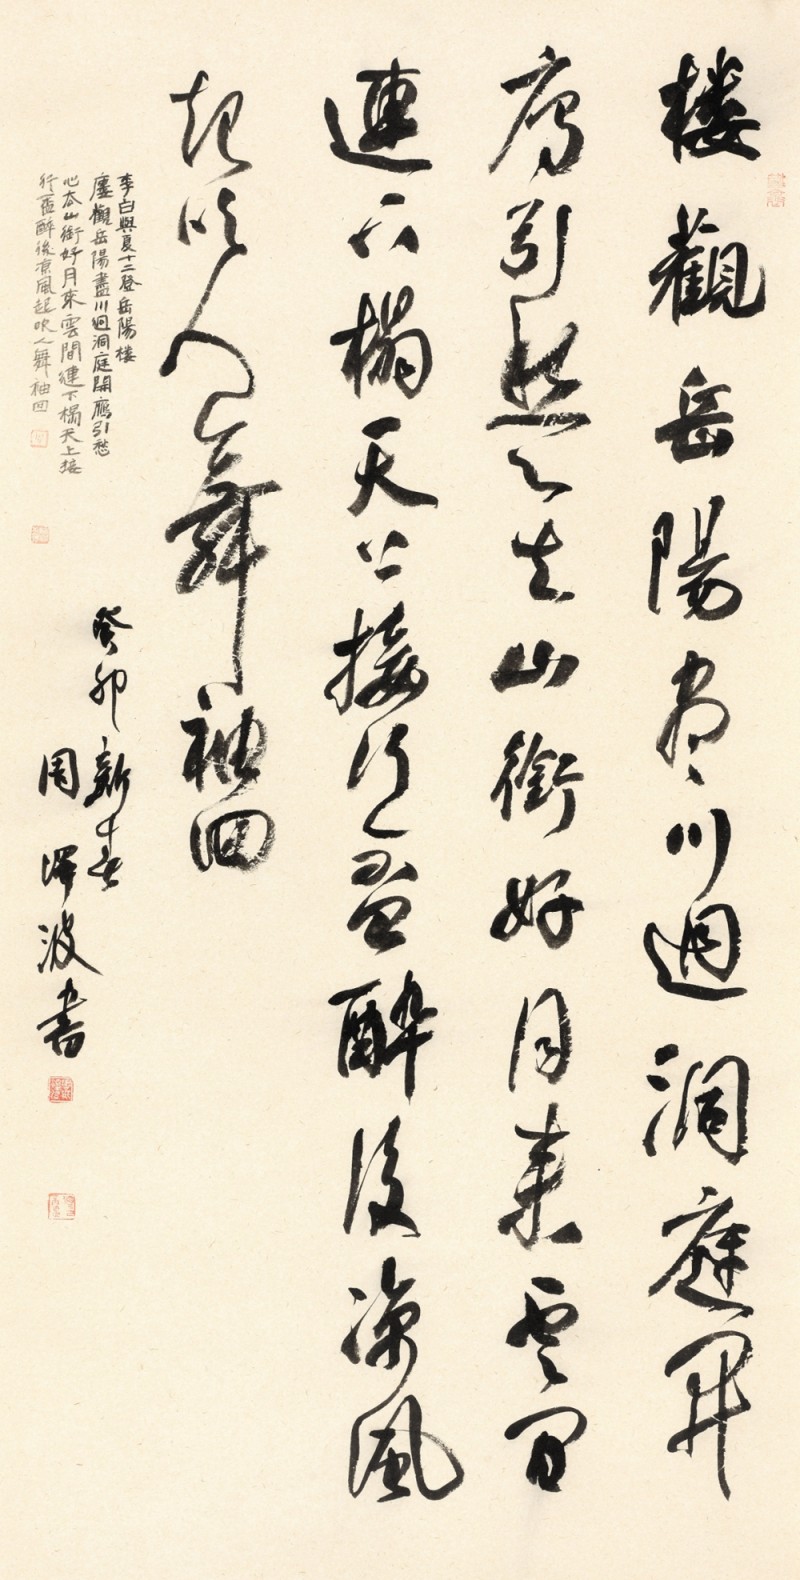 楼觀岳陽盡川迴洞庭開
雁引愁心去山銜好月来雲間
連下榻天上接行盃醉後凉風
起吹人舞袖回
李白與夏十二登岳陽樓
樓觀岳陽盡川迴洞庭開鴈引愁
心去山銜好月來雲間連下榻天上接
行盃醉後凉風起吹人舞袖回
癸卯新春
周澤波書